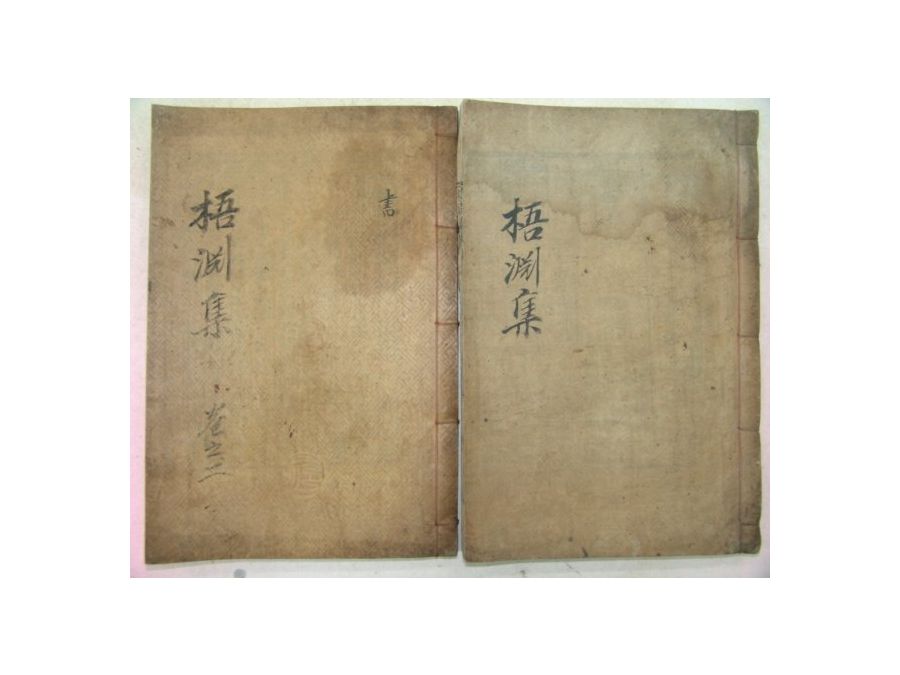 書
梧淵集
卷之二
梧淵集